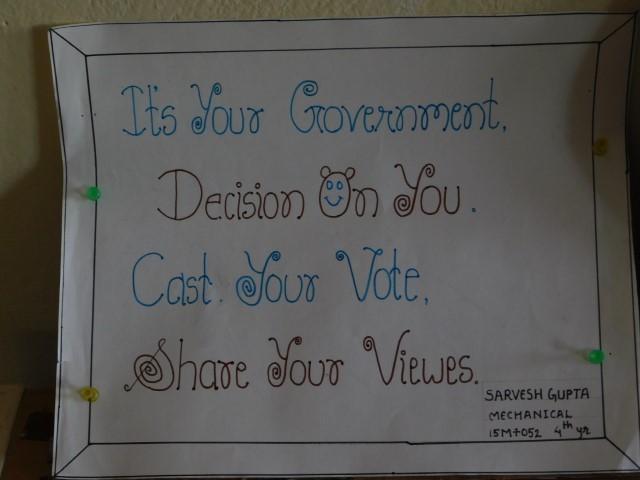 It's Your Government,
Decision On You.
Cast. Your Vote,
Share Your Viewes.
SARVESH GUPTA
MECHANICAL
15M+052 4th yr